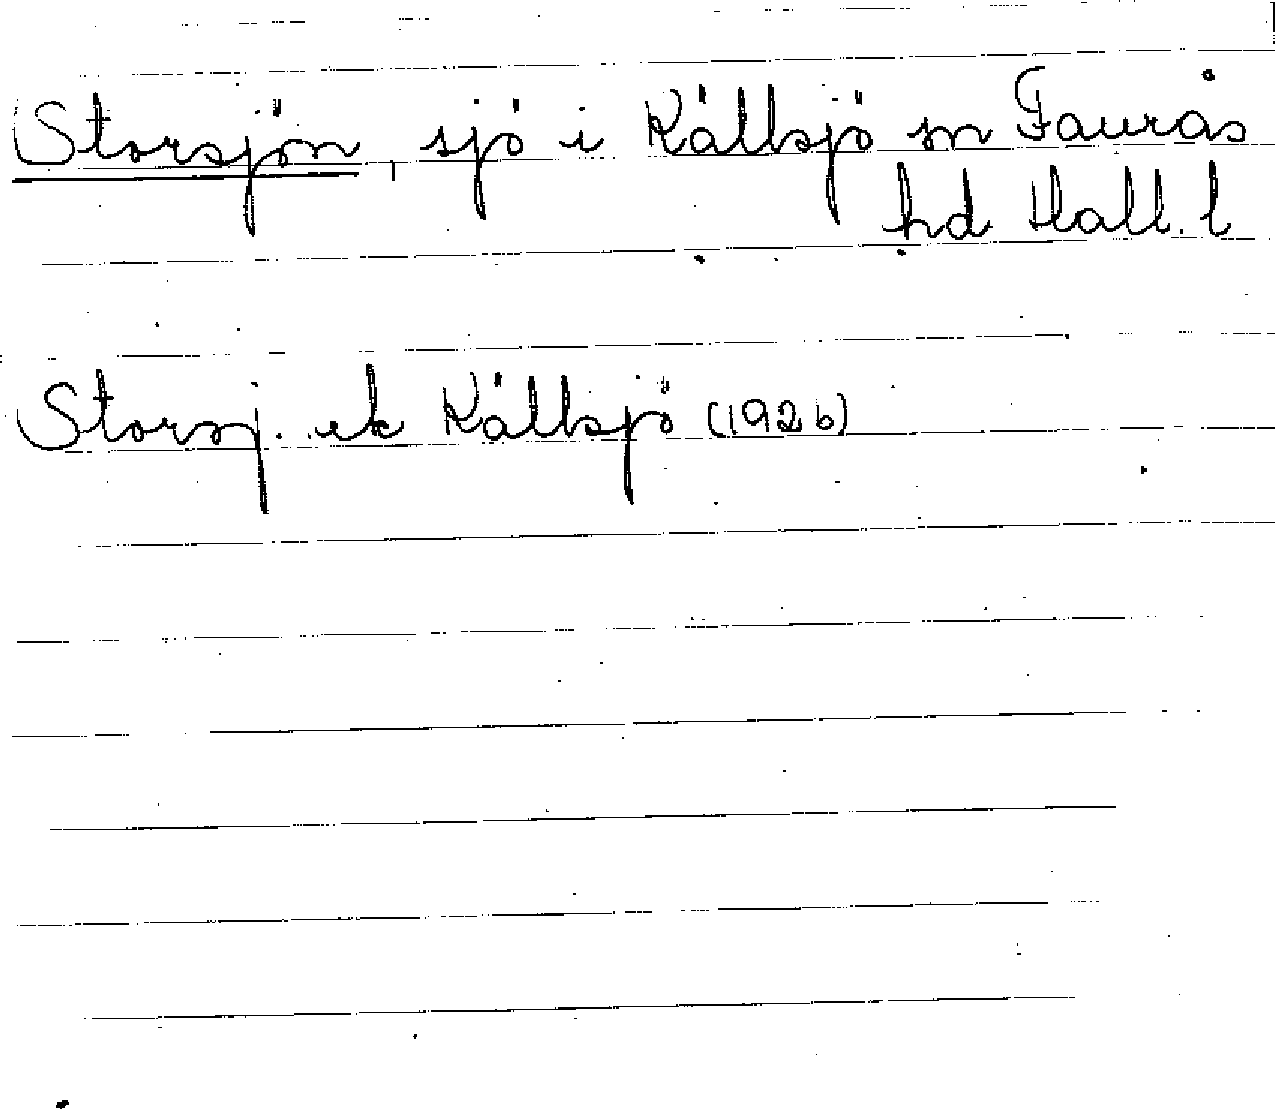 Storsjön, sjö i Källsjö sn Faurås
hd Hall. l
Storsj. ek Källsjö (1926)